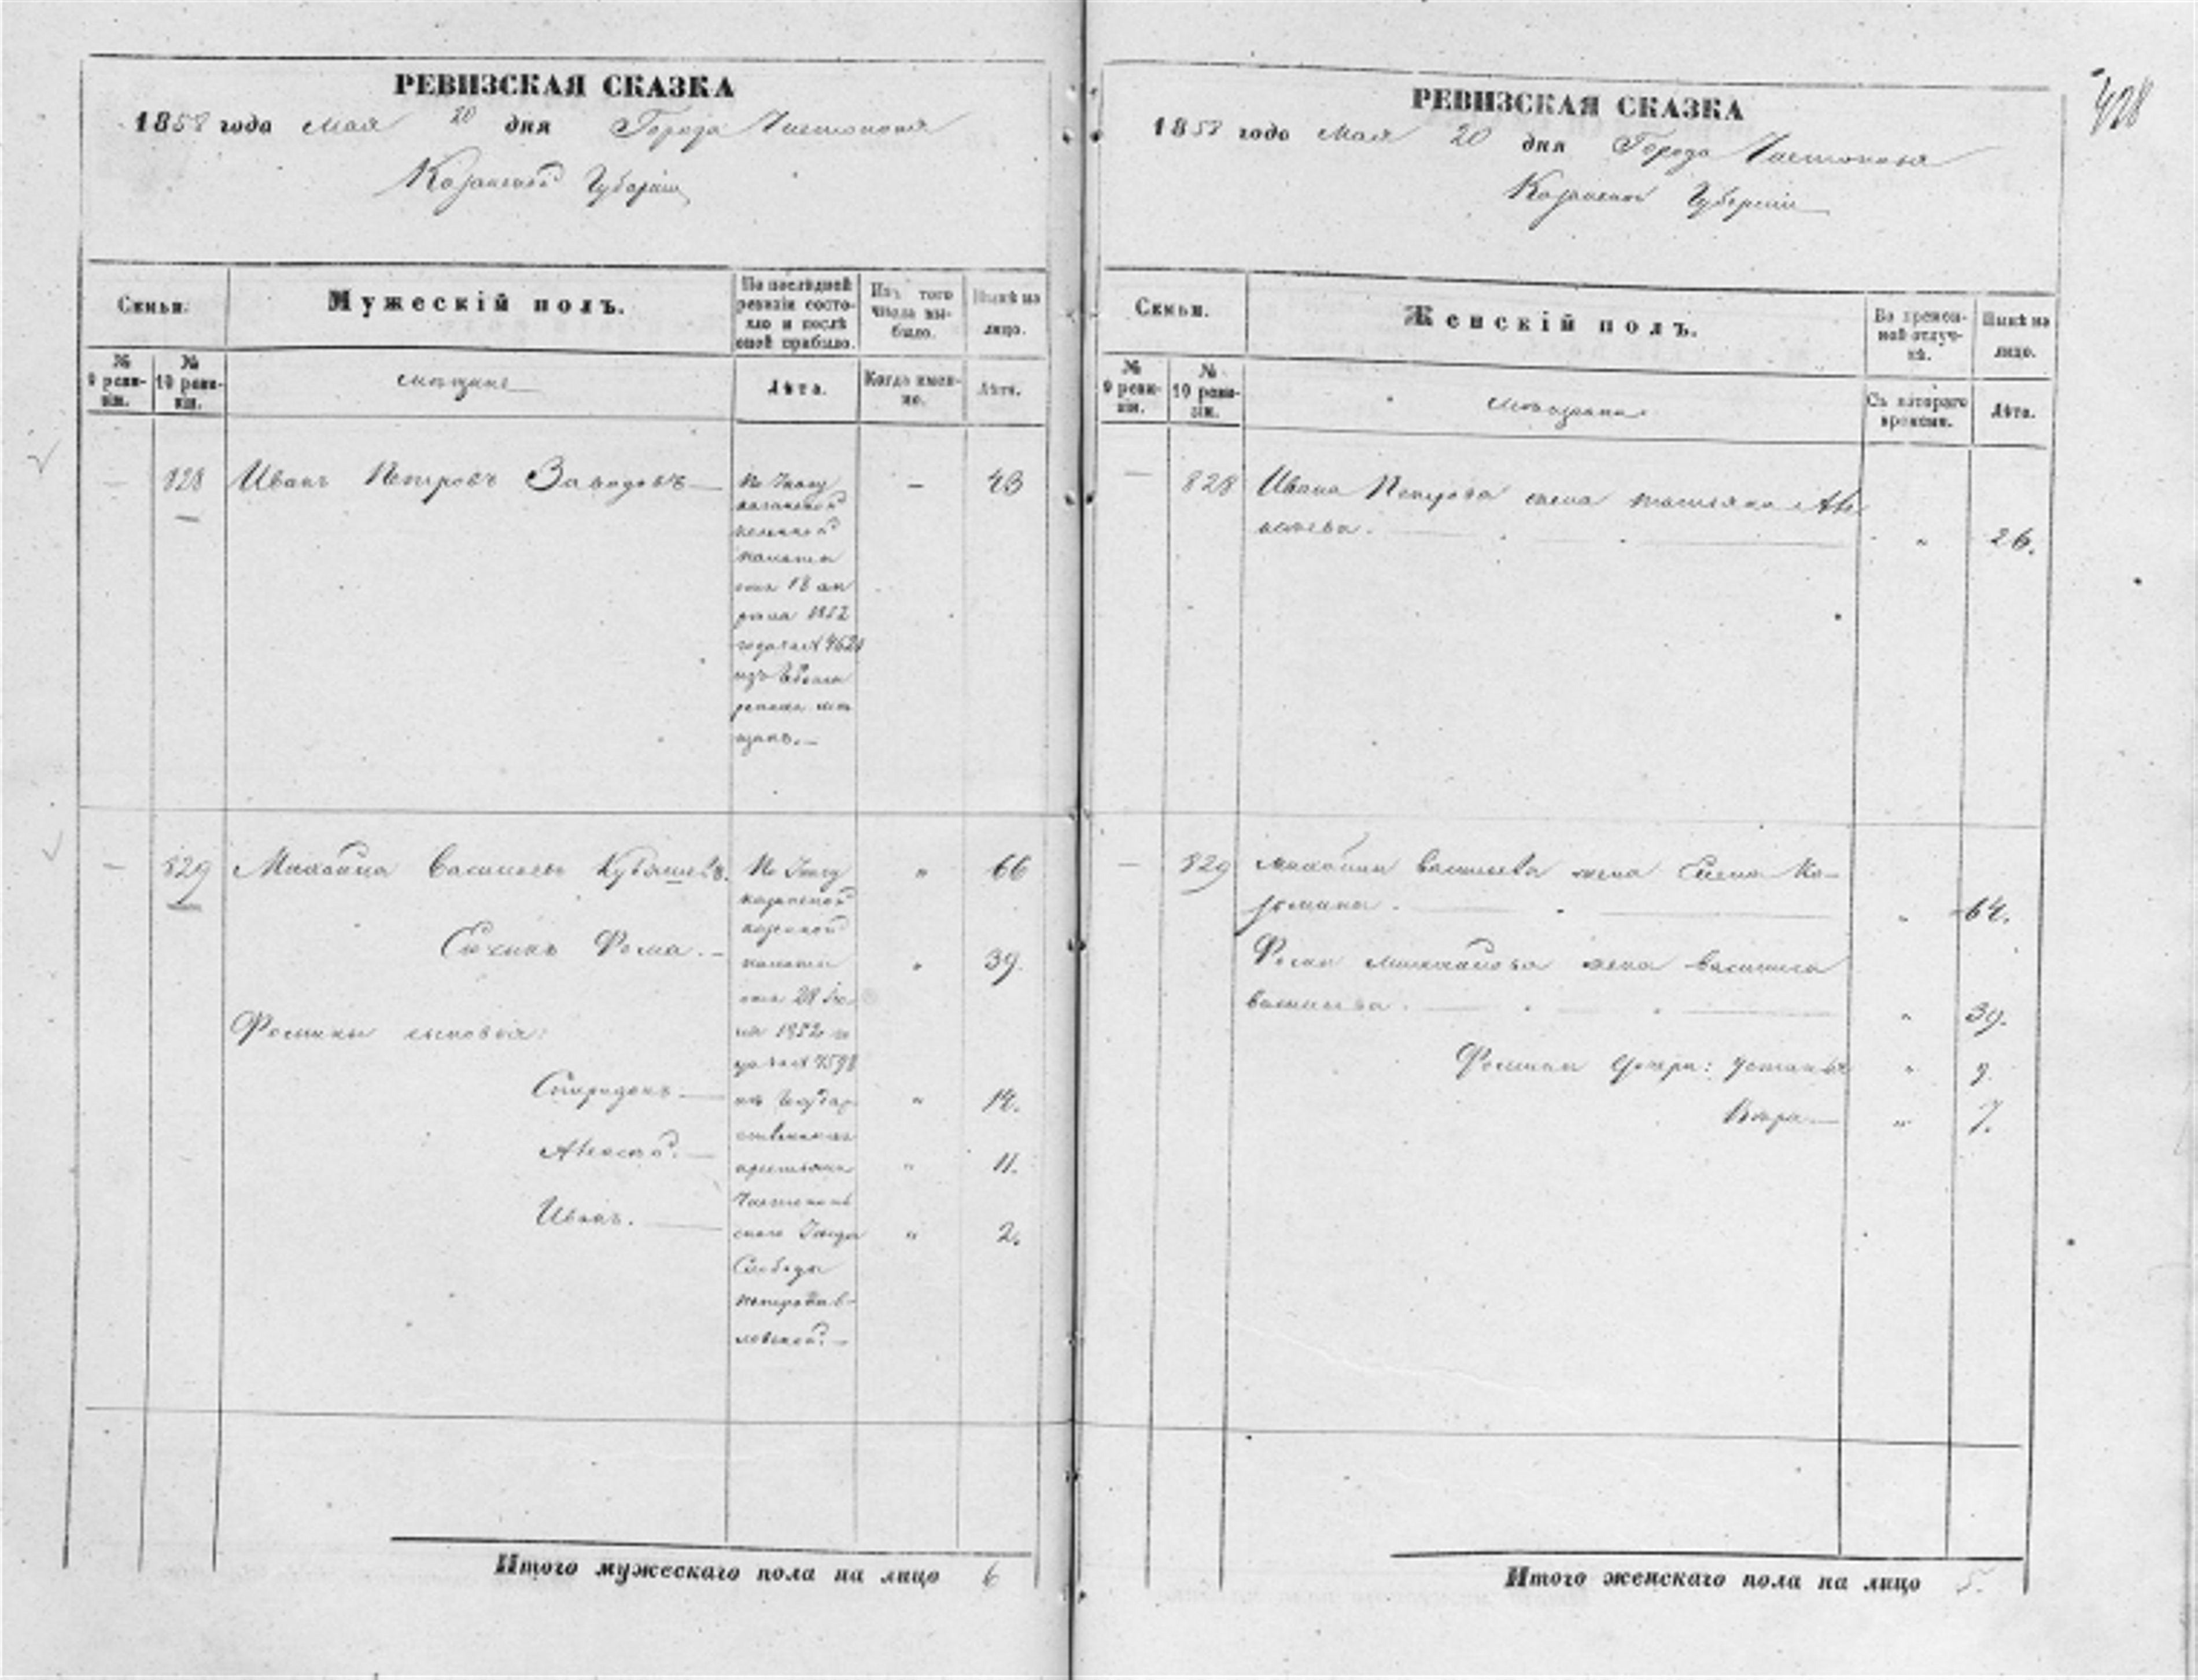 РЕВИЗСКАЯ СКАЗКА
1858 года мая 20 дня Города Чистополя
Казанской Губерніи
Семьи.
Мужескій полъ.
По послѣдней ревизіи состояло и послѣ оной прибыло.
Изъ того числа выбыло.
Нынѣ на лицо.
№ 9 ревизіи.
№ 10 ревизіи.
мѣщане
Лѣта.
Когда именно.
Лѣта.
— 828 Иванъ Петровъ Заводовъ — 43
По Указу
казанской
казенной
палаты
отъ 18 ап
рѣля 1852
года за №
изъ
мѣ
щанъ.—
— 829 Михайла Васильевъ " 66
По Указу
казанской
казенной
палаты
отъ 28
1852 го
да за № 4598
изъ Государ
ственныхъ
крестьянъ
Чистополь
скаго Уѣзда
Слободы
Петропав-
ловской.—
Сынъ Фома.— " 39.
Фомины сыновья:
Спиридонъ — " 14.
Алексѣй.— " 11.
Иванъ.— " 2.
Итого мужескаго пола на лицо 6
428
РЕВИЗСКАЯ СКАЗКА
1858 года Мая 20 дня Города Чистополя
Казанской Губерніи
Семьи.
Женскій полъ.
Во временной отлучкѣ.
Нынѣ на лицо.
№ 9 ревизіи.
№ 10 ревизіи.
мѣщане
Съ котораго времени.
Лѣта.
— 828 Ивана Петрова жена татьяна Але
ксѣева. " 26.
— 829 Михайлы васильева жена Елена Ко-
зьмина. " 64.
Фомы михайлова жена василиса
васильева. " 39.
Фомины дочери: устинья " 9.
Вѣра — " 7.
Итого женскаго пола на лицо 5.